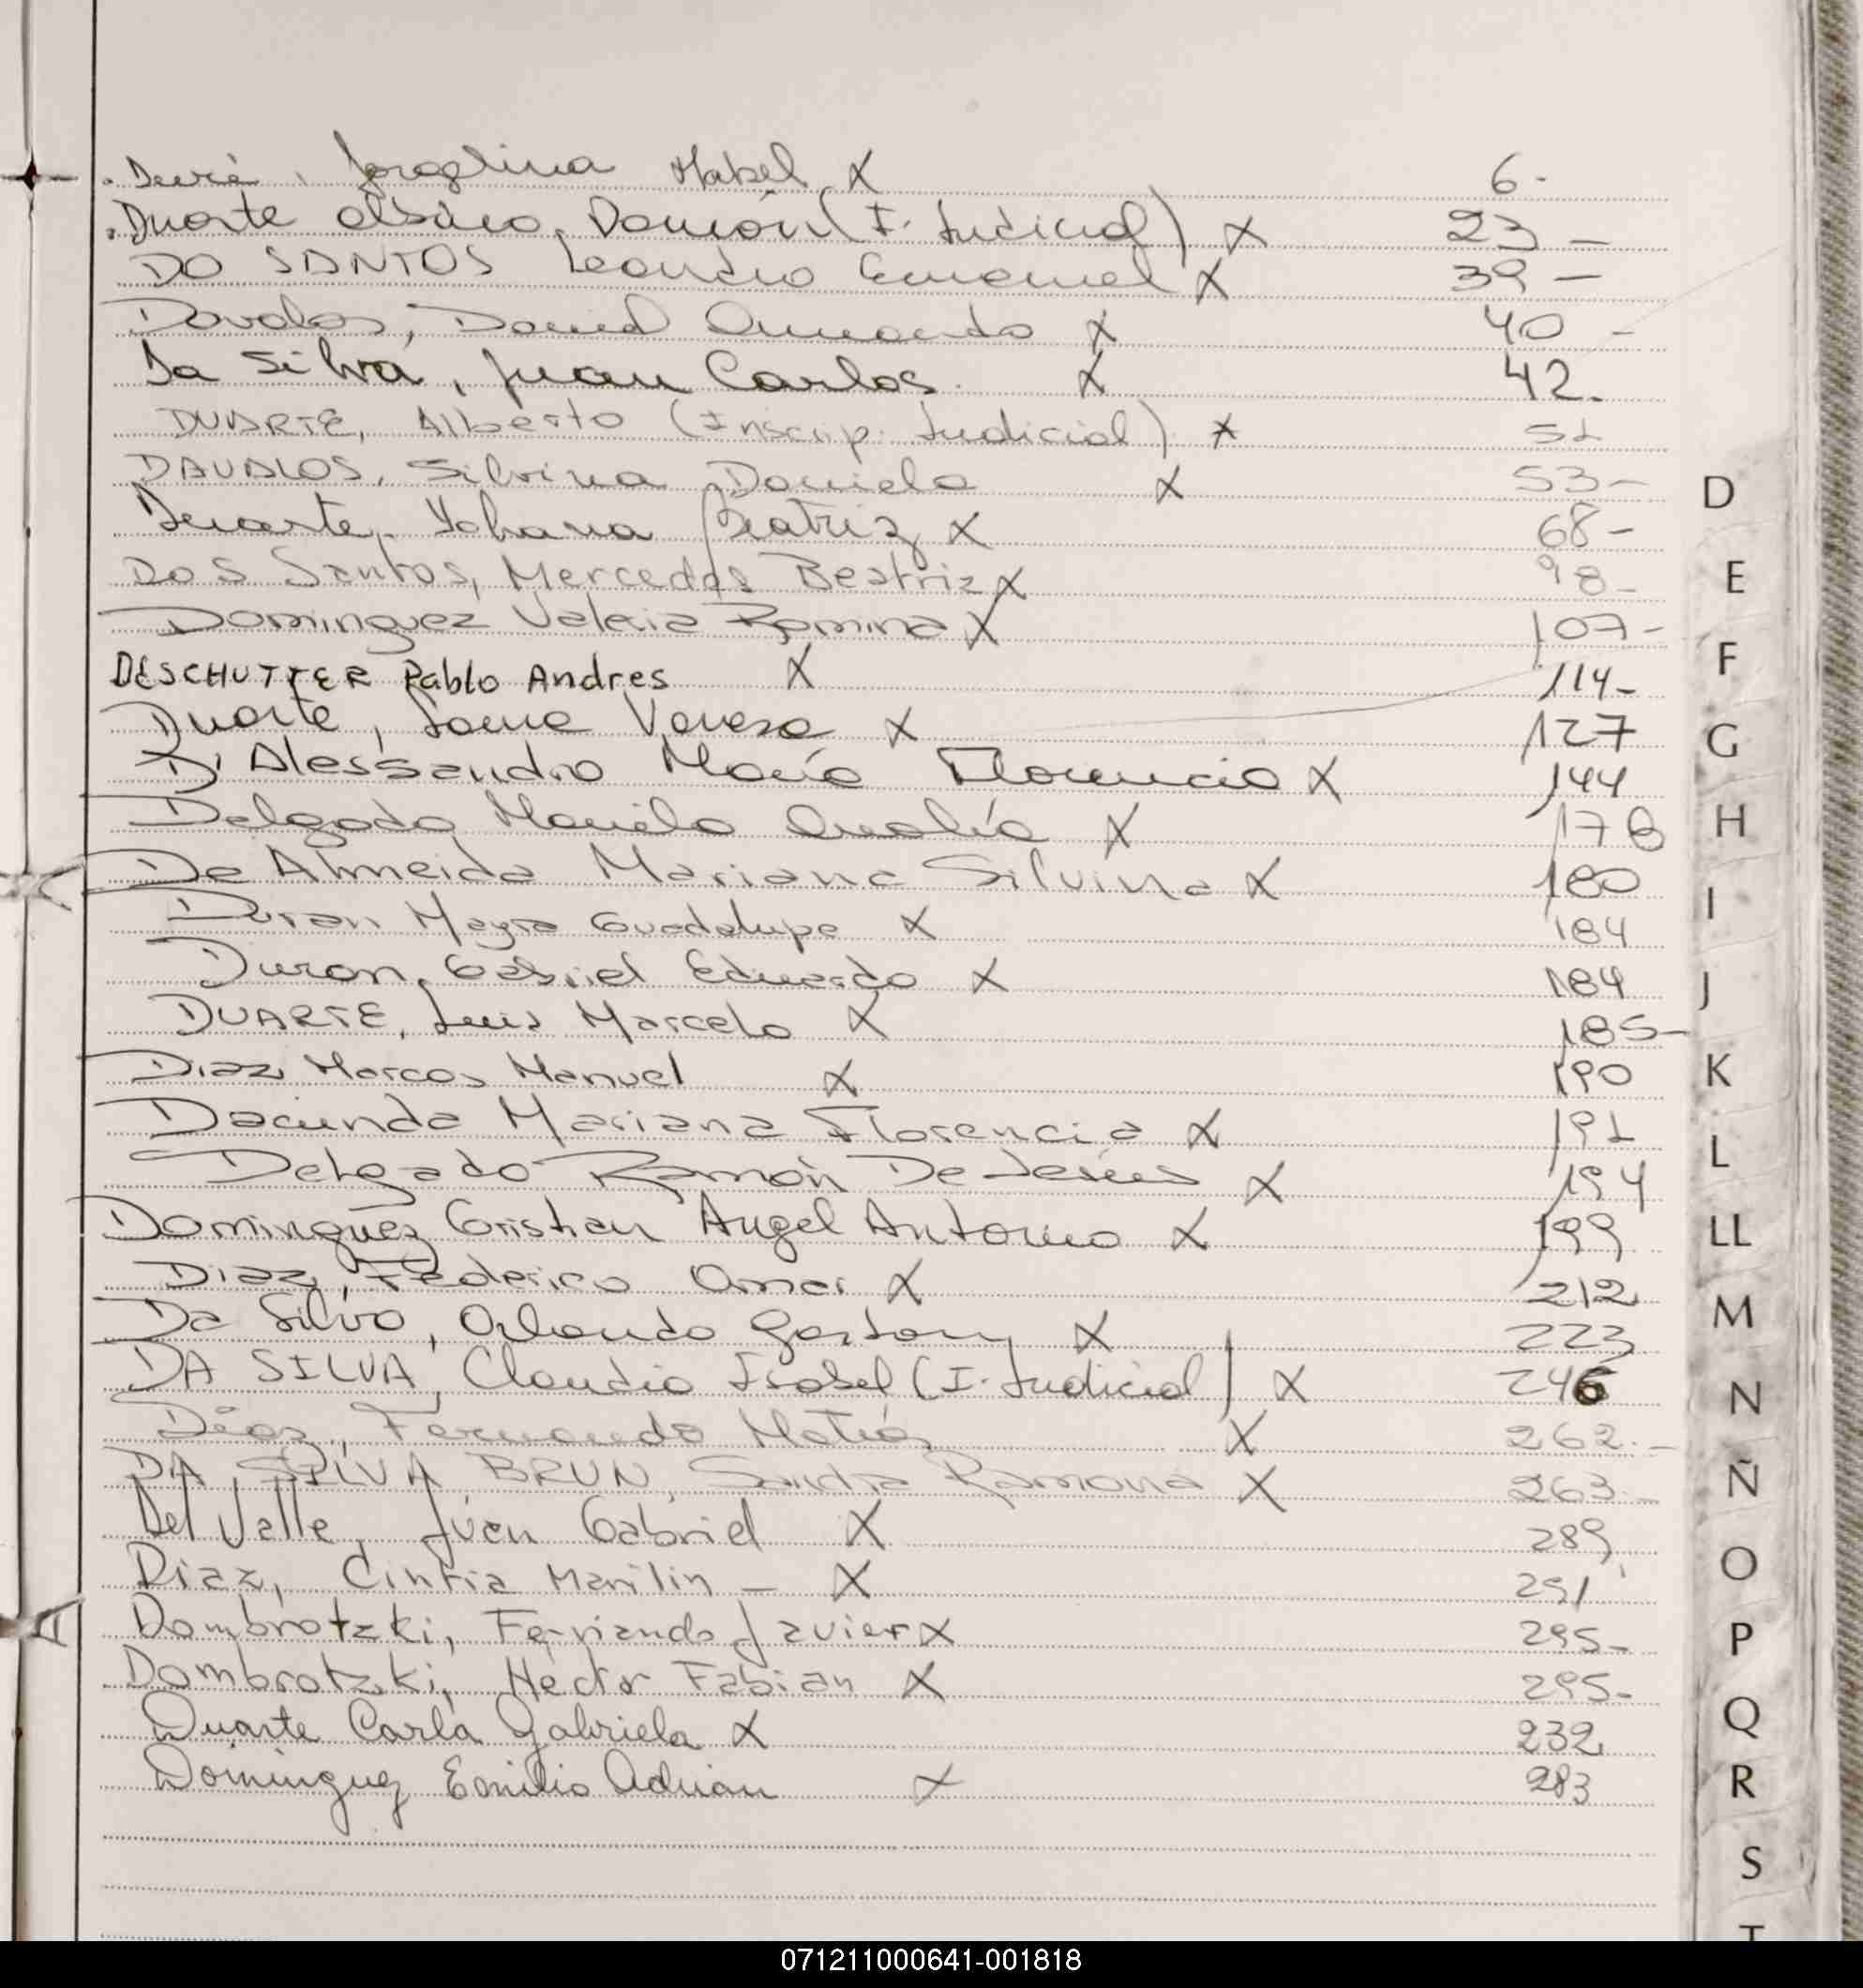 Mabel X 6.-
Duarte Albino, Ramón (I. Judicial) X 23 -
DO SANTOS Leandro Emanuel X 39 -
Davalos, Daniel Armando X 40 -
Da Silva, Juan Carlos. X 42.
DUARTE, Alberto (Inscrip. Judicial) X 51
DAVALOS, Silvina Daniela X 53 -
Duarte, Yohana Beatriz X 68 -
Dos Santos, Mercedes Beatriz X 98 -
Dominguez Valeria Romina X 107 -
DESCHUTTER Pablo Andres X 114 -
Duarte, Vanesa X 127
D'Alessandro María Florencia X 144
Delgado Mariela Analía X 178
De Almeida Mariana Silvina X 180
Duran Mayra Guadalupe X 184
Duran, Gabriel Eduardo X 184
DUARTE, Luis Marcelo X 185 -
Diaz Marcos Manuel X 190
Dacunda Mariana Florencia X 191
Delgado Ramón De Jesús X 194
Dominguez Cristian Angel Antonio X 199
Diaz, Federico Omar X 212
Da Silva, Orlando Gastony X 223
DA SILVA, Claudia Isabel (I. Judicial) X 246
Díaz, Fernando Matías X 262.-
DA SILVA BRUN, Sandra Ramona X 263 -
Del Valle, Juan Gabriel X 289
Diaz, Cintia Marilin - X 291
Dombrotzki, Fernando Javier X 295 -
Dombrotzki, Héctor Fabian X 295 -
Duarte Carla Gabriela X 232
Dominguez Emilio Adrian X 283
D
E
F
G
H
I
J
K
L
LL
M
N
Ñ
O
P
Q
R
S
T
071211000641-001818